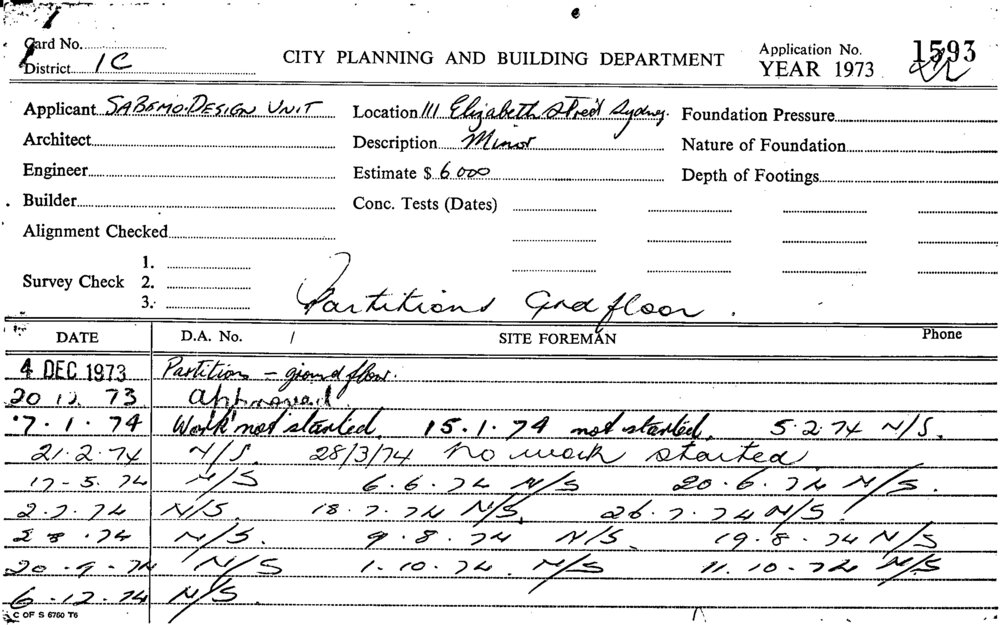 Card No. CITY PLANNING AND BUILDING DEPARTMENT Application No. 1593
District 1C YEAR 1973
Applicant SABEMO DESIGN UNIT Location 111 Elizabeth Street Sydney. Foundation Pressure
Architect Description Minor Nature of Foundation
Engineer Estimate $ 6000 Depth of Footings
Builder Conc. Tests (Dates)
Alignment Checked
1.
Survey Check 2.
3.
Partitions Grd floor.
DATE D.A. No. / SITE FOREMAN Phone
4 DEC 1973 Partition - ground floor.
20 12. 73 approved
7.1.74 Work not started. 15.1.74 not started. 5.2.74 N/S.
21.2.74 N/S. 28/3/74 No work started
17-5.74 N/S 6.6.74 N/S 20.6.74 N/S.
2.7.74 N/S. 18.7.74 N/S. 26.7.74 N/S.
2 8.74 N/S. 9.8.74 N/S. 19.8.74 N/S
20.9.74 N/S 1.10.74. N/S 11.10.74 N/S
6.12.74 N/S.
C OF S 6760 T6